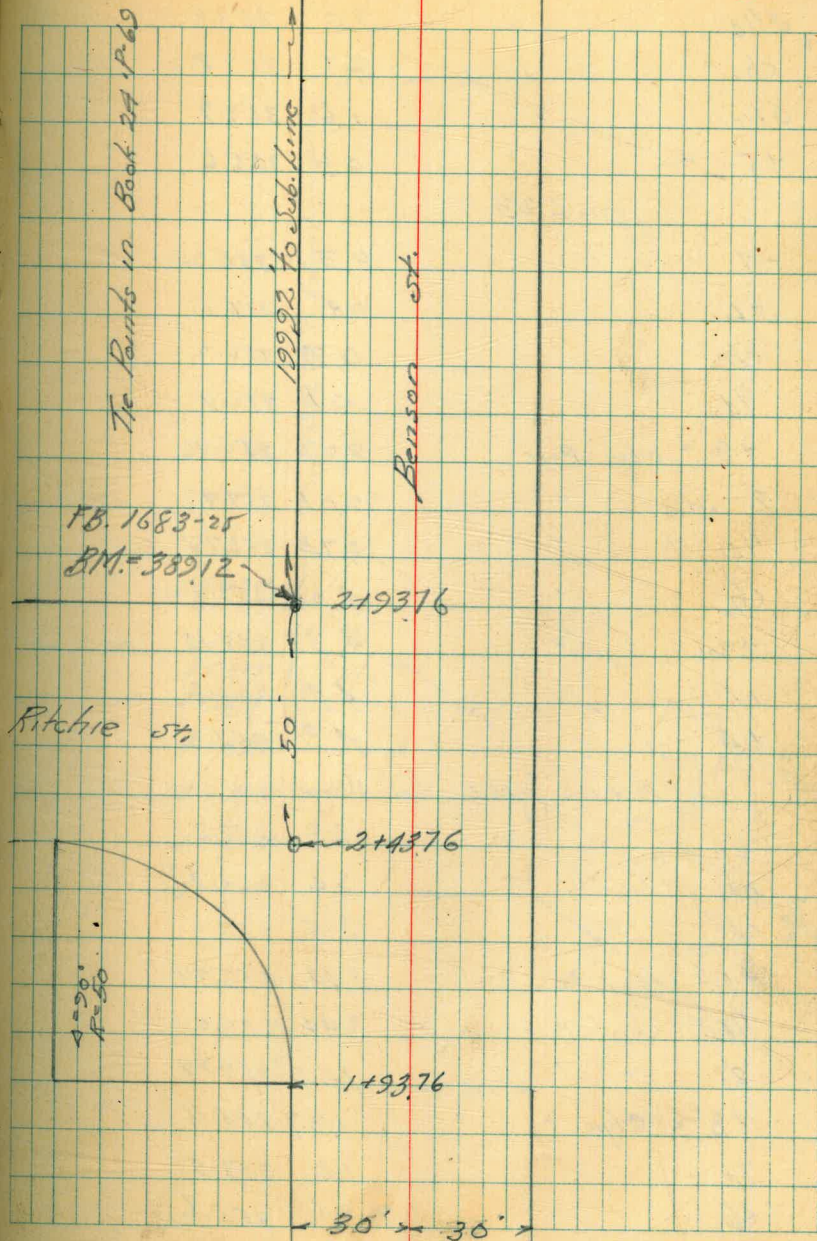 Tie Points in Book 24-P-69
199.92' to Sub. Line
Benson St.
FB. 1683-25
BM.=389.12
2+93.76
Ritchie St.
50'
2+43.76
Δ=90°
R=50
1+93.76
30' 30'